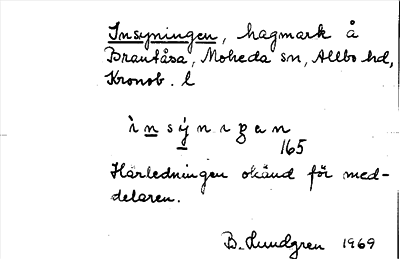 Insyningen, hagmark å
Brantåsa, Moheda sn, Allbo hd,
Kronob. l
ìnsýnıgan
165
Härledningen okänd för med-
delaren.
B. Lundgren 1969